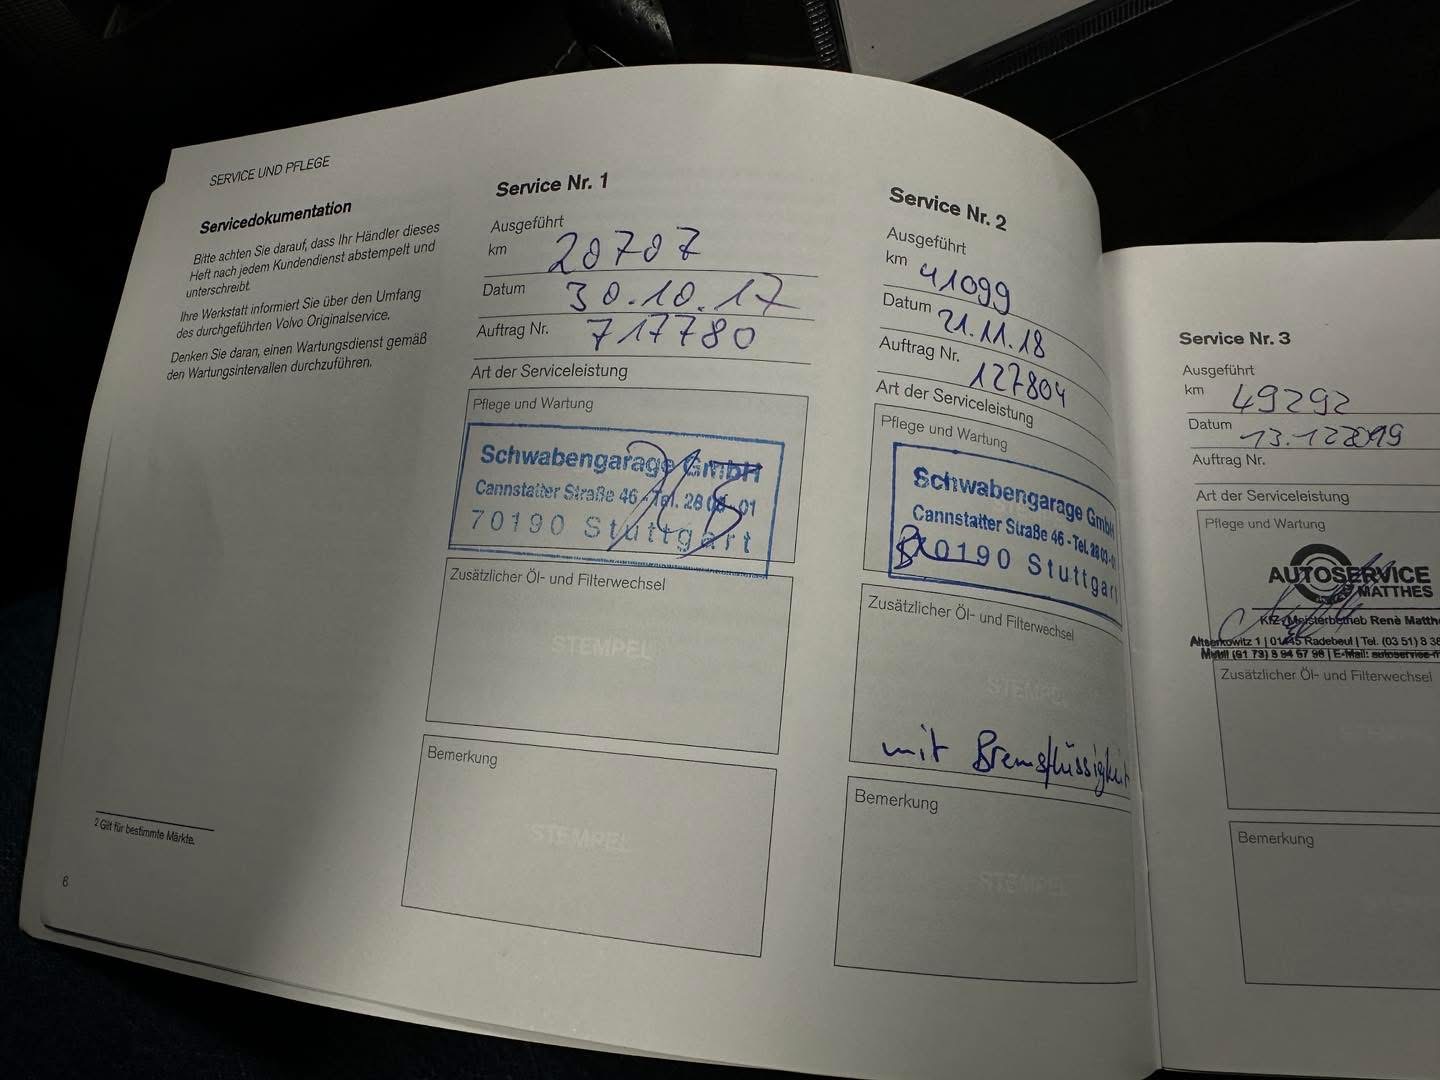 SERVICE UND PFLEGE
Servicedokumentation
Bitte achten Sie darauf, dass Ihr Händler dieses
Heft nach jedem Kundendienst abstempelt und
unterschreibt.
Ihre Werkstatt informiert Sie über den Umfang
des durchgeführten Volvo Originalservice.
Denken Sie daran, einen Wartungsdienst gemäß
den Wartungsintervallen durchzuführen.
2 Gilt für bestimmte Märkte.
6
Service Nr. 1
Ausgeführt
km 20707
Datum 30.10.17
Auftrag Nr. 717780
Art der Serviceleistung
Pflege und Wartung
Schwabengarage GmbH
Cannstatter Straße 46 - Tel. 28 03 - 01
70190 Stuttgart
Zusätzlicher Öl- und Filterwechsel
STEMPEL
Bemerkung
STEMPEL
Service Nr. 2
Ausgeführt
km 41099
Datum 21.11.18
Auftrag Nr. 127804
Art der Serviceleistung
Pflege und Wartung
Schwabengarage GmbH
Cannstatter Straße 46 - Tel. 28 03 -
70190 Stuttgart
Zusätzlicher Öl- und Filterwechsel
STEMPEL
mit Bremsflüssigkeit
Bemerkung
STEMPEL
Service Nr. 3
Ausgeführt
km 49292
Datum 13.12.2019
Auftrag Nr.
Art der Serviceleistung
Pflege und Wartung
AUTOSERVICE
MATTHES
KFZ-Meisterbetrieb Renè Matthe
Altserkowitz 1 | 01445 Radebeul | Tel. (03 51) 8 38
Mobil (01 73) 8 94 57 96 | E-Mail: autoservice-m
Zusätzlicher Öl- und Filterwechsel
Bemerkung